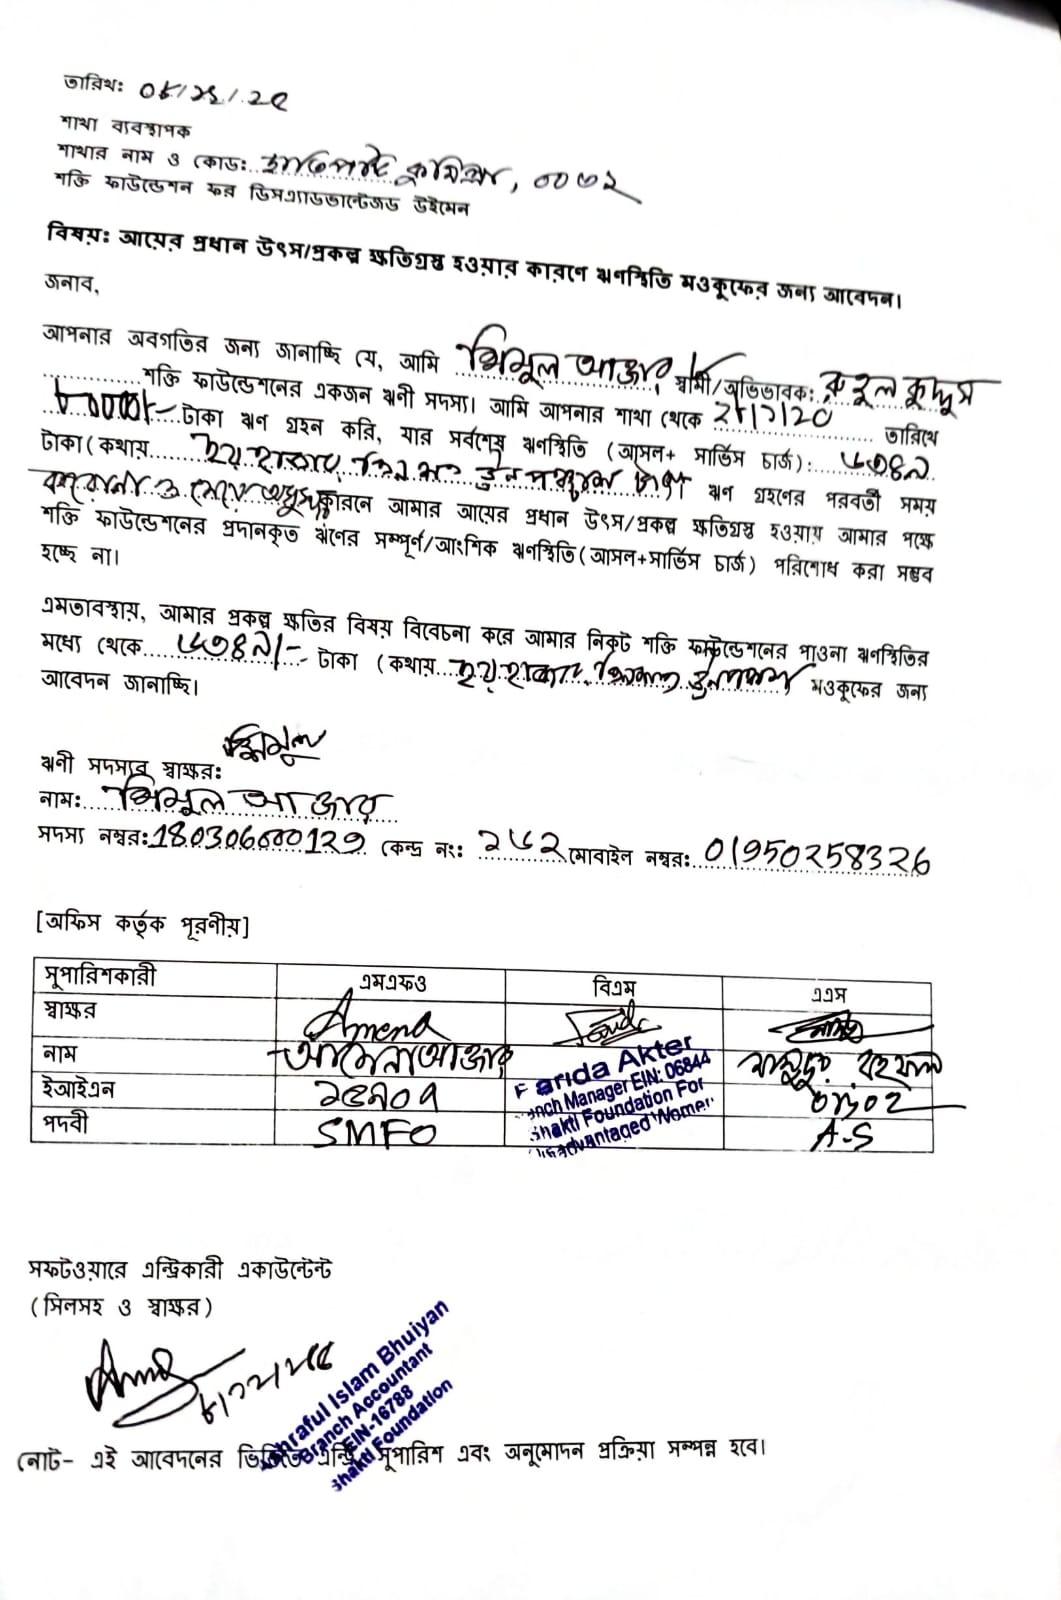 তারিখ: ০৮/১২/২৫
শাখা ব্যবস্থাপক
শাখার নাম ও কোড: কুমিল্লা, ০০৩২
শক্তি ফাউন্ডেশন ফর ডিসএ্যাডভান্টেজড উইমেন
বিষয়: আয়ের প্রধান উৎস/প্রকল্প ক্ষতিগ্রস্থ হওয়ার কারণে ঋণস্থিতি মওকুফের জন্য আবেদন।
জনাব,
আপনার অবগতির জন্য জানাচ্ছি যে, আমি শিমুল আক্তার স্বামী/অভিভাবক: রুহুল কুদ্দুস
শক্তি ফাউন্ডেশনের একজন ঋণী সদস্য। আমি আপনার শাখা থেকে ২৮/১/২০ তারিখে
৮০০০০/- টাকা ঋণ গ্রহন করি, যার সর্বশেষ ঋণস্থিতি (আসল+ সার্ভিস চার্জ): ৬৩৪৯
টাকা (কথায় ছয় হাজার তিন শত ঊনপঞ্চাশ টাকা ঋণ গ্রহণের পরবর্তী সময়
করোনা ও মেয়ে অসুস্থ কারনে আমার আয়ের প্রধান উৎস/প্রকল্প ক্ষতিগ্রস্থ হওয়ায় আমার পক্ষে
শক্তি ফাউন্ডেশনের প্রদানকৃত ঋণের সম্পূর্ণ/আংশিক ঋণস্থিতি (আসল+সার্ভিস চার্জ) পরিশোধ করা সম্ভব
হচ্ছে না।
এমতাবস্থায়, আমার প্রকল্প ক্ষতির বিষয় বিবেচনা করে আমার নিকট শক্তি ফাউন্ডেশনের পাওনা ঋণস্থিতির
মধ্যে থেকে ৬৩৪৯/- টাকা (কথায় ছয় হাজার তিনশত ঊনপঞ্চাশ মওকুফের জন্য
আবেদন জানাচ্ছি।
ঋণী সদস্যর স্বাক্ষর: শিমুল
নাম: শিমুল আক্তার
সদস্য নম্বর: 180306000129 কেন্দ্র নং: ২৬২ মোবাইল নম্বর: 01950258326
[অফিস কর্তৃক পূরণীয়]
সুপারিশকারী এমএফও বিএম এএস
স্বাক্ষর Amena
নাম আমেনা আক্তার Farida Akter
ইআইএন ১৫৯০৭ Branch Manager EIN: 06844 ০৮৯০২
পদবী SMFO Shakti Foundation For A.S
Disadvantaged Women
সফটওয়ারে এন্ট্রিকারী একাউন্টেন্ট
(সিলসহ ও স্বাক্ষর)
৮/১২/২৫
Ashraful Islam Bhuiyan
Branch Accountant
EIN-16788
Shakti Foundation
নোট- এই আবেদনের ভিত্তিতে এন্ট্রি সুপারিশ এবং অনুমোদন প্রক্রিয়া সম্পন্ন হবে।